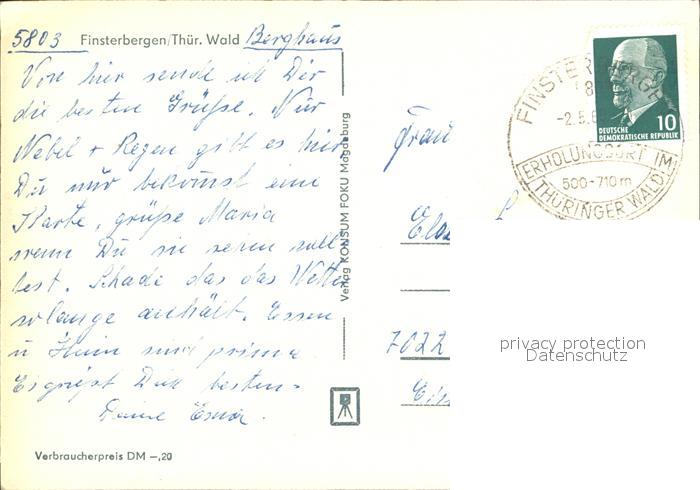 5803 Finsterbergen/Thür. Wald Berghaus
Von hier sende ich Dir
die besten Grüße. Nur
Nebel + Regen gibt es hier
Du nur bekomst eine
Karte, grüße Maria
wenn Du sie sehen soll
test. Schade das das Wetter
solange anhält. Essen
u sind prima
Es grüßt Dich bestens
Deine
Verbraucherpreis DM –,20
Verlag KONSUM FOKU Magdeburg
FINSTERBERGEN
-2.5.6
ERHOLUNGSORT IM
500-710m
THÜRINGER WALD
10
DEUTSCHE
DEMOKRATISCHE REPUBLIK
Frau
7022
privacy protection
Datenschutz